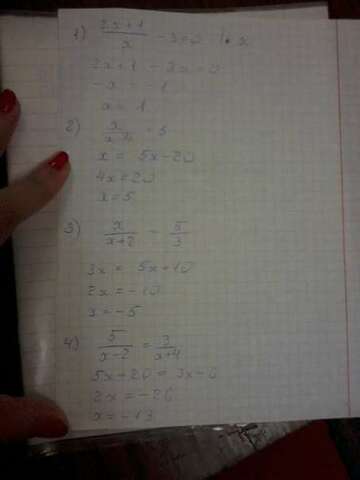 1) (2x+1)/x - 3 = 0 | · x
2x+1 - 3x = 0
-x = -1
x = 1
2) x/(x-4) = 5
x = 5x-20
4x = 20
x = 5
3) x/(x+2) = 5/3
3x = 5x+10
2x = -10
x = -5
4) 5/(x-2) = 3/(x+4)
5x+20 = 3x-6
2x = -26
x = -13